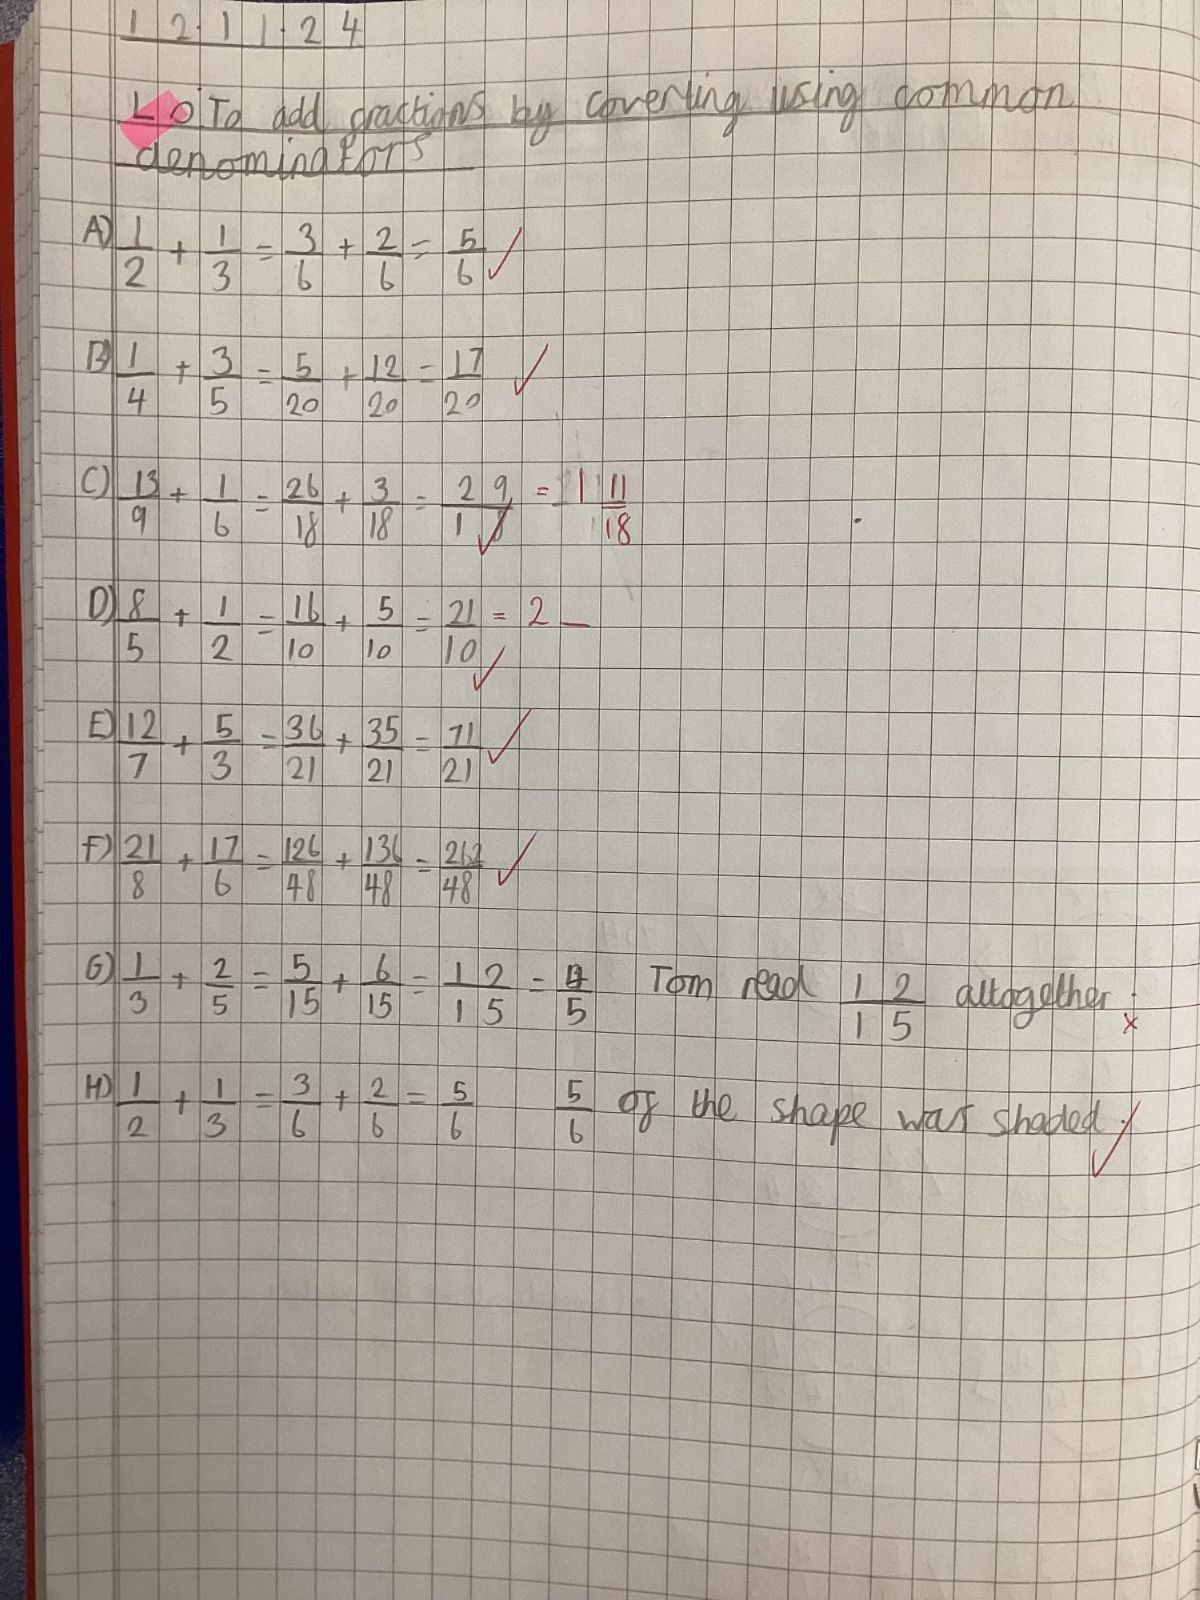 12.11.24
LO To add fractions by coverting using common
denominators
A) 1/2 + 1/3 = 3/6 + 2/6 = 5/6 ✓
B) 1/4 + 3/5 = 5/20 + 12/20 = 17/20 ✓
C) 13/9 + 1/6 = 26/18 + 3/18 = 29/18 ✓ = 1 11/18
D) 8/5 + 1/2 = 16/10 + 5/10 = 21/10 ✓ = 2 _
E) 12/7 + 5/3 = 36/21 + 35/21 = 71/21 ✓
F) 21/8 + 17/6 = 126/48 + 136/48 = 262/48 ✓
G) 1/3 + 2/5 = 5/15 + 6/15 = 12/15 = 4/5 Tom read 12/15 altogether. x
H) 1/2 + 1/3 = 3/6 + 2/6 = 5/6 5/6 of the shape was shaded. ✓